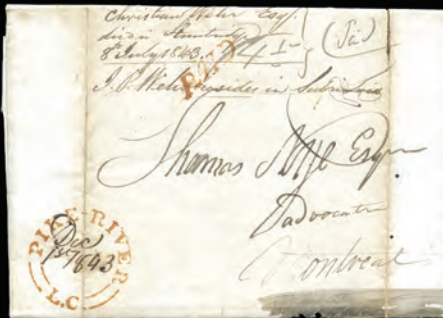 Christian Wehr Esqr.
died in
8th July 1843.
PAID
J. P. Wehr resides in
Thomas Nye Esqr
Advocate
Montreal
PIKE-RIVER
Dec
1st 1843
L.C